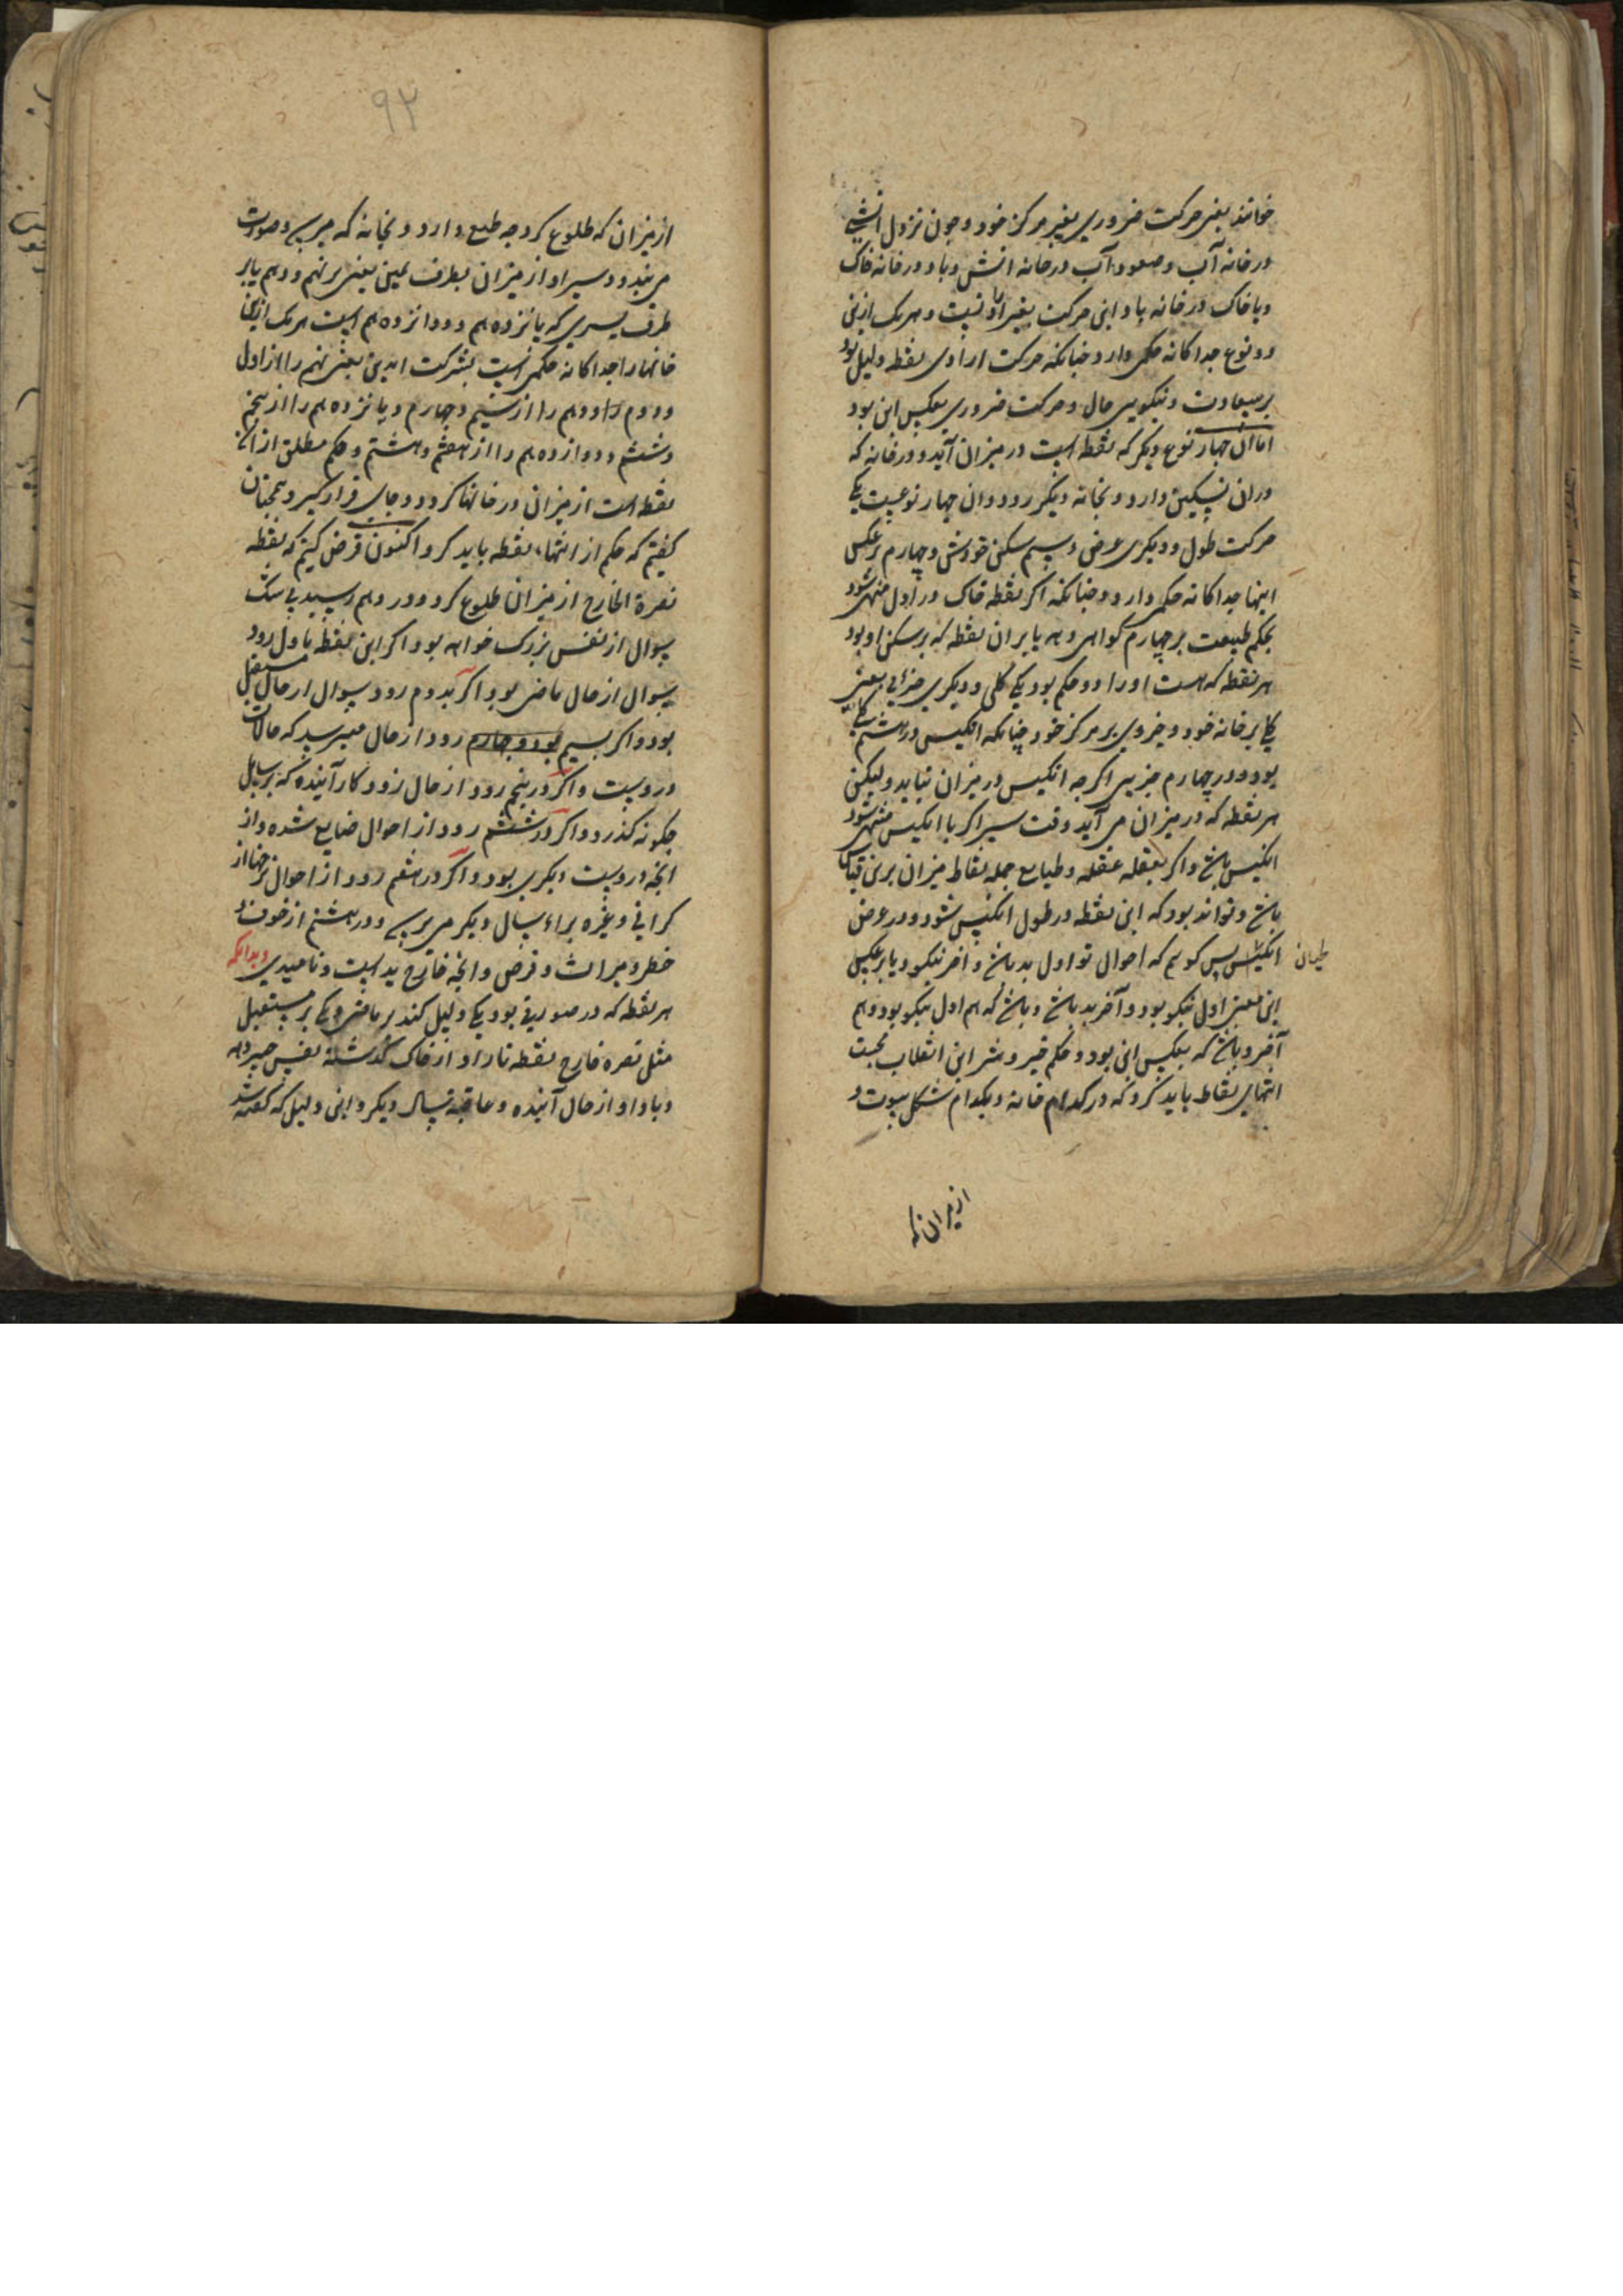 خوانند یعنی حرکت ضروری بغیر مرکز خود و چون نزول آتشی
در خانه آب و صعود آب در خانه آتش و باد در خانه خاک
و یا خاک در خانه باد و این حرکت بغیر ارادتست و هر یک ازین
دو نوع جداکانه حکمی دارد چنانکه حرکت ارادی نقطه دلیل بود
بر سعادت و نیکویی حال و حرکت ضروری بعکس این بود
اما آن چهار نوع دیگر که نقطه است در میزان آید و در خانه که
در آن تسکین دارد و بخانه دیگر رود و آن چهار نوعیست یکی
حرکت طول و دیگری عرض و سیم سکن خودش و چهارم برعکس
اینها جداکانه حکمی دارد و چنانکه اگر نقطه خاک در اول منتهی شود
بحکم طبیعت بر چهارم گواهی دهد یا بر آن نقطه که بر سکن او بود
هر نقطه که هست او را دو حکم بود یکی کلی و دیگری جزئی یعنی
یکی بر خانه خود و جزوی بر مرکز خود چنانکه انکیس در هشتم کلی
بود و در چهارم جزیی اگرچه انکیس در میزان نیاید ولیکن
هر نقطه که در میزان می آید وقت سیر اگر با انکیس منتهی شود
انکیس باشد و اگر بعقله عقله و طبایع جمله نقاط میزان برین قیاس
باشد و تواند بود که این نقطه در طول انکیس شود و در عرض
لحیان
انکیس پس گوییم که احوال تو اول بد باشد و آخر نیکو و یا برعکس
این یعنی اول نیکو بود و آخر بد باشد و باشد که هم اول نیکو بود و هم
آخر و باشد که بعکس این بود و حکم خیر و شر این انقلاب بحسب
انتهای نقاط باید کرد که در کدام خانه و بکدام شکل پیوست و
از میزان که
۹۲
از میزان که طلوع کرد چه طبع دارد و بخانه که میرسد و صورت
می بندد و سیر او از میزان بطرف یمین یعنی بر نهم و دهم یا بر
طرف یسری که پانزدهم و دوانزدهم است هر یک ازین
خانها را جداکانه حکمی است بشرکت ابدین یعنی نهم را از اول
و دوم و دهم را از سیم و چهارم و پانزدهم را از پنجم
و ششم و دوازدهم را از هفتم و هشتم و حکم مطلق از آن
نقطه است از میزان در خانها کردد و جای قرار گیرد همچنان
گفتیم که حکم از انتهاء نقطه باید کرد اکنون فرض کنیم که نقطه
نصرة الخارج از میزان طلوع کرد و در دهم رسید بی شک
سوال از نفس بزرگ خواهد بود اگر این نقطه باول رود
سوال از حال ماضی بود و اگر بدوم رود سوال از حال مستقبل
بود و اگر بسیم بود و چهارم رود از حال میپرسد که حالات
دروست و اگر در پنجم رود از حال روزکار آینده که بر سایل
چگونه گذرد و اگر در ششم رود از احوال ضایع شده و از
آنچه دروست دیگری بود و اگر در هفتم رود از احوال نرخها از
گرانی و غیره براء سال دیگر می پرسد و در هشتم از خوف و
خطر و میراث و قرض و آنچه خارج یداست و ناامیدی و بدانکه
هر نقطه که در صورتی بود یکی دلیل کند بر ماضی و یکی بر مستقبل
مثل نصره خارج نقطه نار او از خاک گذشته نفس خبر دهد
و باد او از حال آینده و عاقبة بسال دیگر و این دلیل که گفته شد